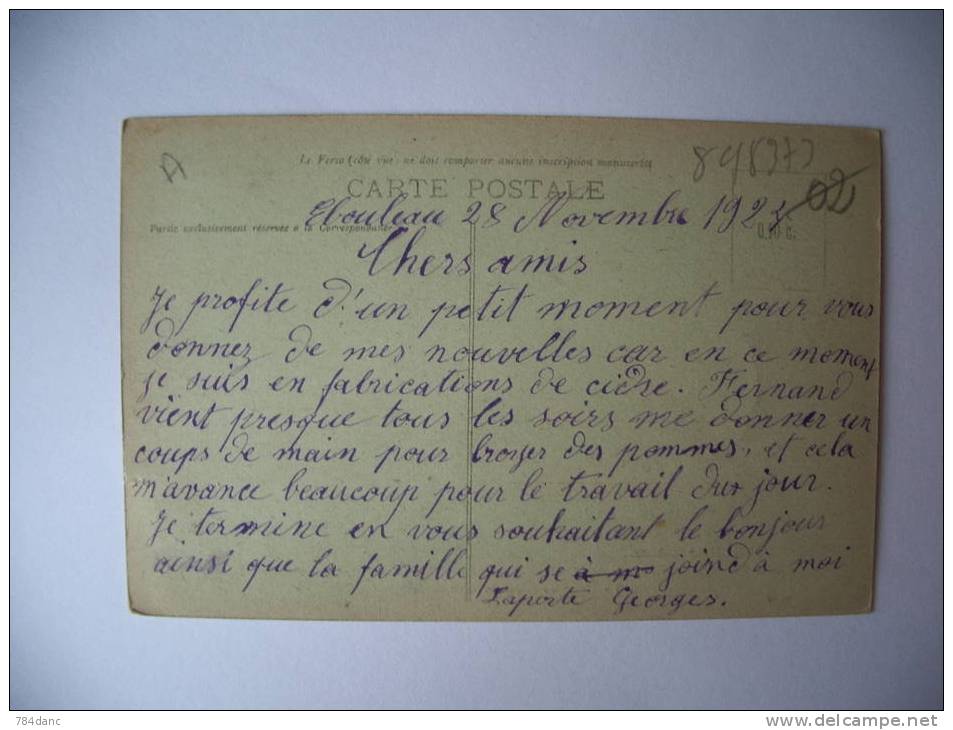 Le Verso (côté vue) ne doit comporter aucune inscription manuscrite
A
CARTE POSTALE
02
Ebouleau 28 Novembre 192
Partie exclusivement réservée à la Correspondance
0,10 c.
Chers amis
Je profite d'un petit moment pour vous
donnez de mes nouvelles car en ce moment
je suis en fabrications de cidre. Fernand
vient presque tous les soirs me donner un
coups de main pour broyer des pommes, et cela
m'avance beaucoup pour le travail du jour.
Je termine en vous souhaitant le bonjour
ainsi que la famille qui se joind à moi
Laporte Georges.
784danc
www.delcampe.net